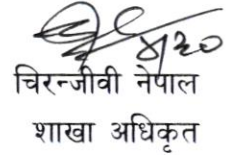 ४/२०
चिरन्जीवी नेपाल
शाखा अधिकृत